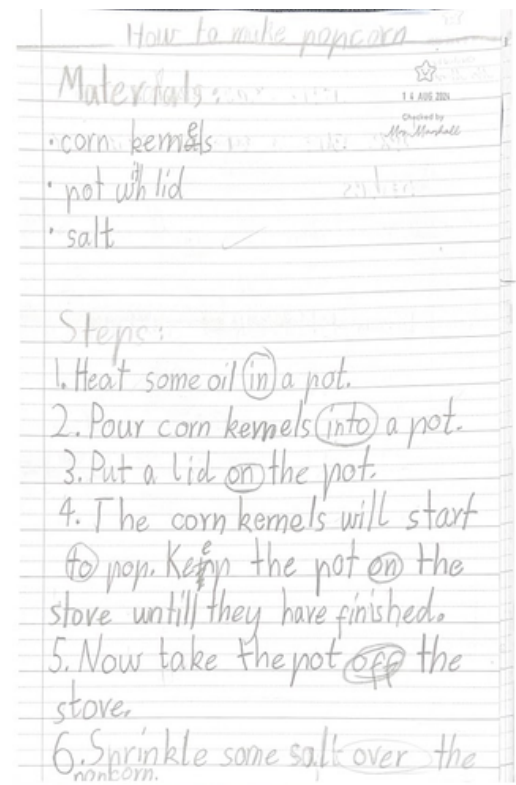 How to make popcorn
Materials:
16 AUG 2024
Checked by
Mrs Marshall
• corn kernels
• pot with lid
• salt
Steps:
1. Heat some oil in a pot.
2. Pour corn kernels into a pot.
3. Put a lid on the pot.
4. The corn kernels will start
to pop. Keep the pot on the
stove untill they have finished.
5. Now take the pot off the
stove.
6. Sprinkle some salt over the
popcorn.